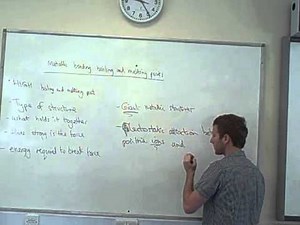 Metallic bonding boiling and melting points
- HIGH boiling and melting point
- Type of structure
- what holds it together
- How strong is the force
- energy required to break force
- Giant metallic structure
- Electrostatic attraction
positive ions and